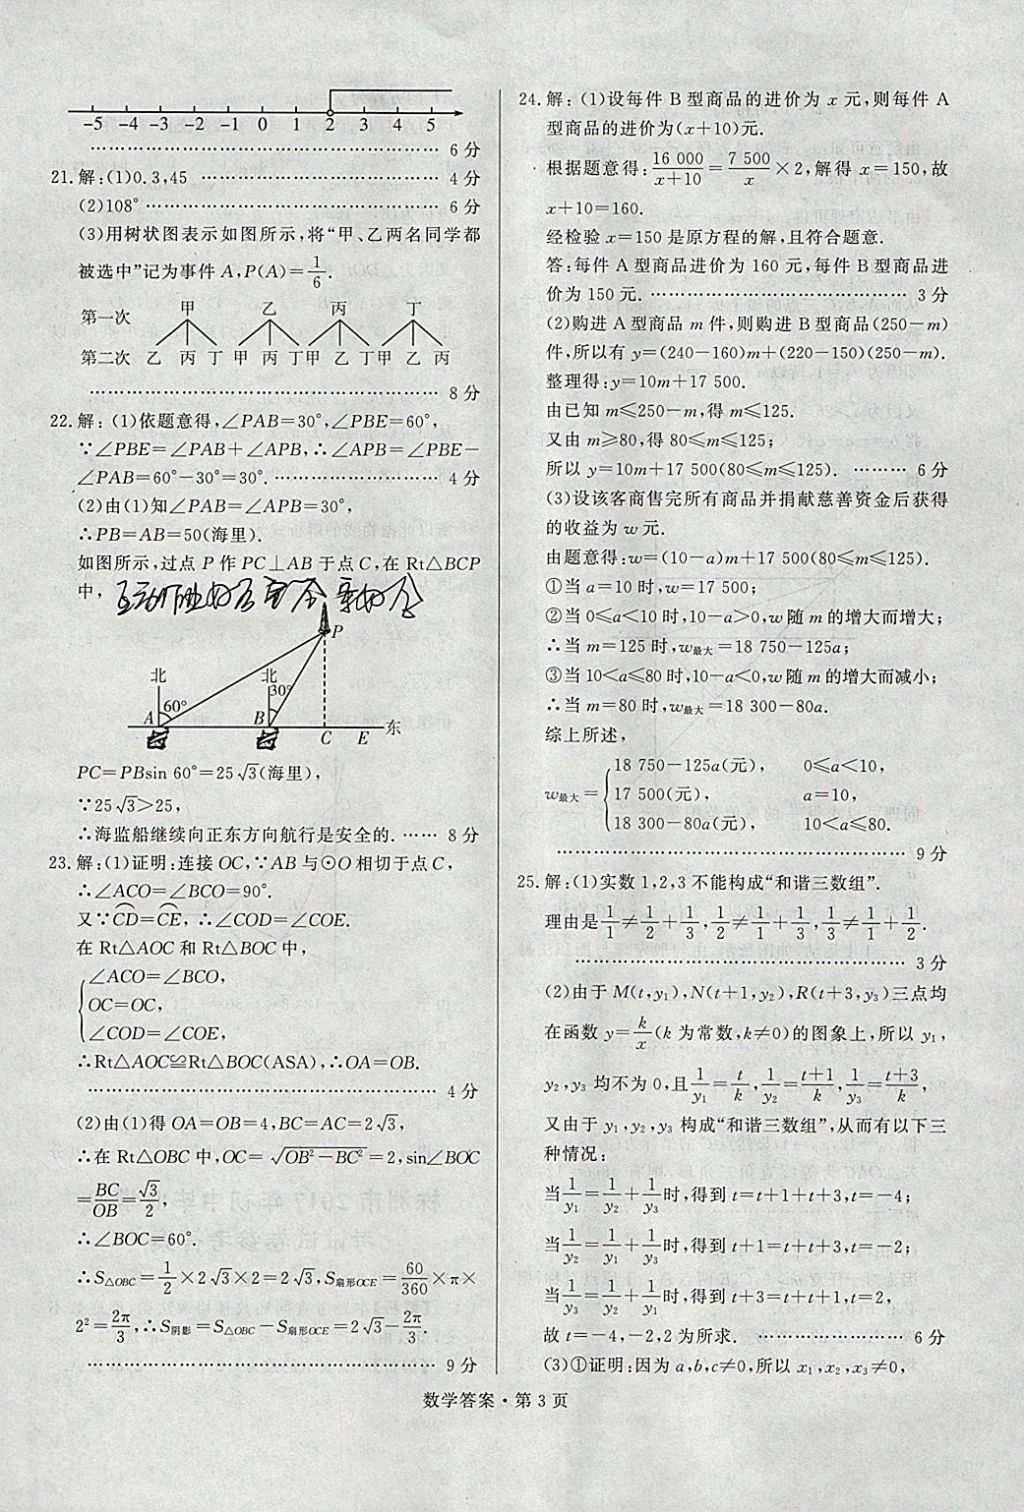 -5 -4 -3 -2 -1 0 1 2 3 4 5
…… 6 分
21.解:(1)0.3,45 …… 4 分
(2)108°…… 6 分
(3)用树状图表示如图所示,将“甲、乙两名同学都
被选中”记为事件 A,P(A)=1/6.
第一次 甲 乙 丙 丁
第二次 乙 丙 丁 甲 丙 丁 甲 乙 丁 甲 乙 丙
…… 8 分
22.解:(1)依题意得,∠PAB=30°,∠PBE=60°,
∵∠PBE=∠PAB+∠APB,∴∠APB=∠PBE-
∠PAB=60°-30°=30°. …… 4 分
(2)由(1)知∠PAB=∠APB=30°,
∴PB=AB=50(海里).
如图所示,过点 P 作 PC⊥AB 于点 C,在 Rt△BCP
中,
P
北 北
60° 30°
A B C E 东
PC=PBsin 60°=25√3(海里),
∵25√3>25,
∴海监船继续向正东方向航行是安全的. …… 8 分
23.解:(1)证明:连接 OC,∵AB 与⊙O 相切于点 C,
∴∠ACO=∠BCO=90°.
又∵⌒CD=⌒CE,∴∠COD=∠COE.
在 Rt△AOC 和 Rt△BOC 中,
∠ACO=∠BCO,
OC=OC,
∠COD=∠COE,
∴Rt△AOC≌Rt△BOC(ASA),∴OA=OB.
…… 4 分
(2)由(1)得 OA=OB=4,BC=AC=2√3,
∴在 Rt△OBC 中,OC=√(OB²-BC²)=2,sin∠BOC
=BC/OB=√3/2,
∴∠BOC=60°.
∴S△OBC=1/2×2√3×2=2√3,S扇形OCE=60/360×π×
2²=2π/3,∴S阴影=S△OBC-S扇形OCE=2√3-2π/3.
…… 9 分
24.解:(1)设每件 B 型商品的进价为 x 元,则每件 A
型商品的进价为(x+10)元.
根据题意得:16 000/(x+10)=7 500/x×2,解得 x=150,故
x+10=160.
经检验 x=150 是原方程的解,且符合题意.
答:每件 A 型商品进价为 160 元,每件 B 型商品进
价为 150 元. …… 3 分
(2)购进 A 型商品 m 件,则购进 B 型商品(250-m)
件,所以有 y=(240-160)m+(220-150)(250-m).
整理得:y=10m+17 500.
由已知 m≤250-m,得 m≤125.
又由 m≥80,得 80≤m≤125;
所以 y=10m+17 500(80≤m≤125). …… 6 分
(3)设该客商售完所有商品并捐献慈善资金后获得
的收益为 w 元.
由题意得:w=(10-a)m+17 500(80≤m≤125).
①当 a=10 时,w=17 500;
②当 0≤a<10 时,10-a>0,w 随 m 的增大而增大;
∴当 m=125 时,w最大=18 750-125a;
③当 10<a≤80 时,10-a<0,w 随 m 的增大而减小;
∴当 m=80 时,w最大=18 300-80a.
综上所述,
18 750-125a(元), 0≤a<10,
w最大= 17 500(元), a=10,
18 300-80a(元), 10<a≤80.
…… 9 分
25.解:(1)实数 1,2,3 不能构成“和谐三数组”.
理由是1/1≠1/2+1/3,1/2≠1/1+1/3,1/3≠1/1+1/2.
…… 3 分
(2)由于 M(t,y₁),N(t+1,y₂),R(t+3,y₃)三点均
在函数 y=k/x(k 为常数,k≠0)的图象上,所以 y₁,
y₂,y₃ 均不为 0,且1/y₁=t/k,1/y₂=(t+1)/k,1/y₃=(t+3)/k,
又由于 y₁,y₂,y₃ 构成“和谐三数组”,从而有以下三
种情况:
当1/y₁=1/y₂+1/y₃时,得到 t=t+1+t+3,t=-4;
当1/y₂=1/y₁+1/y₃时,得到 t+1=t+t+3,t=-2;
当1/y₃=1/y₁+1/y₂时,得到 t+3=t+t+1,t=2,
故 t=-4,-2,2 为所求. …… 6 分
(3)①证明:因为 a,b,c≠0,所以 x₁,x₂,x₃≠0,
数学答案·第 3 页